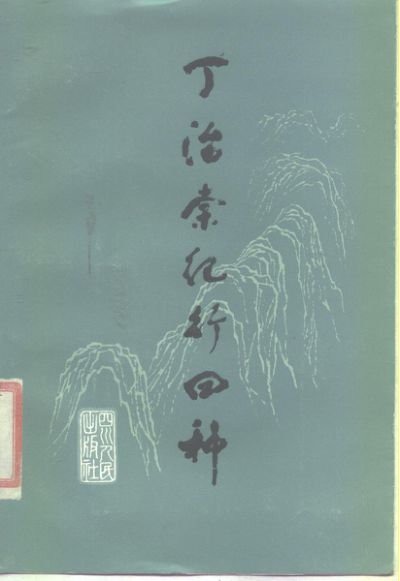 丁治棠纪行四种
四川人民
出版社